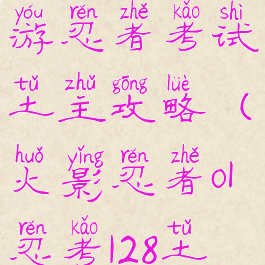 yóu rěn zhě kǎo shì
游忍者考试
tǔ zhǔ gōng lüè
土主攻略（
huǒ yǐng rěn zhě
火影忍者01
rěn kǎo tǔ
忍考128土